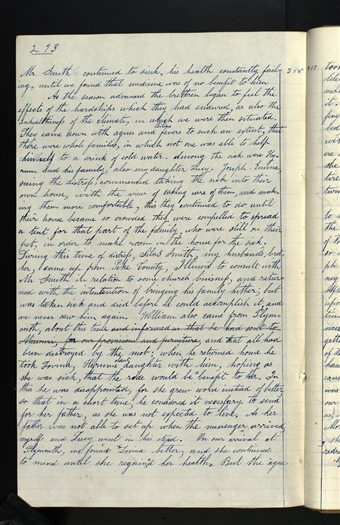 293
Mr. Smith continued to sink, his health constantly fail-
ing, until we found that medicine was of no benefit to him
As the season advanced the brethren began to feel the
effects of the hardships which they had endured, as also the
unhealthiness of the climate, in which we were then situated.
They came down with agues and fevers to such an extent, that
there were whole families, in which not one was able to help
himself to a drink of cold water. Among the sick were Hy-
rum and his family, also my daughter Lucy. Joseph & Emma,
seeing the distress, commenced taking the sick into their
own house, with the view of taking care of them, and mak-
ing them more comfortable, this they continued to do until
their house became so crowded they were compelled to spread
a tent for that part of the family, who were still on their
feet, in order to make room in the house for the sick.
During this time of distress, Silas Smith, my husband's bro-
ther, came up from Pike County, Illinois to consult with
Mr Smith in relation to some church business, and retur-
ned with the intention of bringing his family hither; but
was taken sick and died before he could accomplish it, and
we never saw him again. William also came from Plym-
outh, about this time and informed us that he had sent to
for our provision and furniture, and that all had
been destroyed by the mob; when he returned home he
took Lovina, Hyrum's daughter with him, hoping as
she was sick, that the ride would be benefit to her. In
this he was disappointed, for she grew worse instead of better
so that in a short time he considered it necessary to send
for her father, as she was not expected to live. As her
father was not able to set up when the messenger arrived,
myself and Lucy went in his stead. On our arrival at
Plymouth, we found Lovina better, and she continued
to mend until she regained her health. But the ague